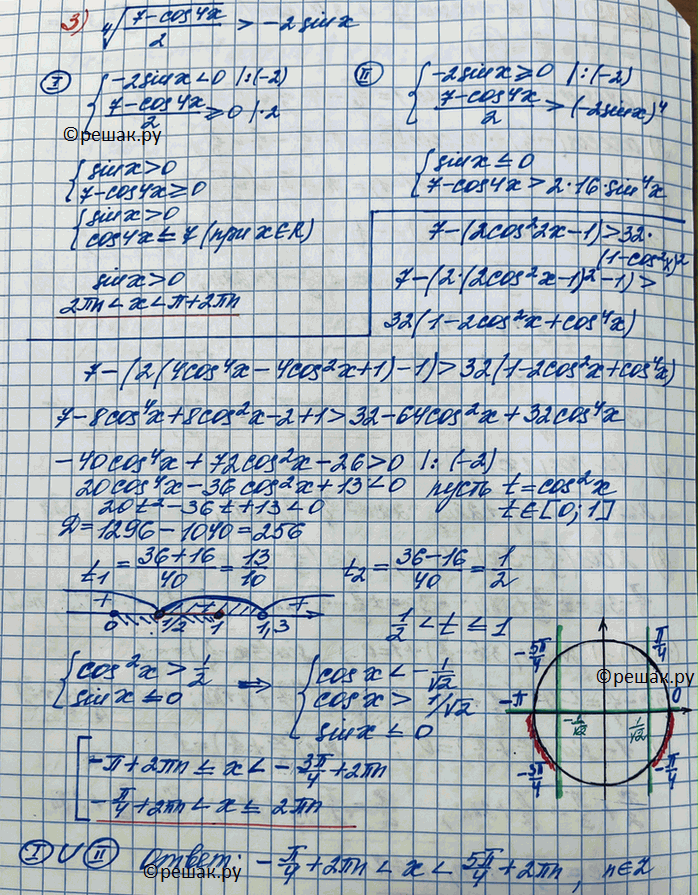 3) ⁴√((7-cos4x)/2) > -2sinx
I { -2sinx<0 |:(-2)
(7-cos4x)/2 ≥ 0 |·2
©решак.ру
{ sinx>0
7-cos4x≥0
{ sinx>0
cos4x≤7 (при x∈R)
sinx>0
2πn<x<π+2πn
II { -2sinx≥0 |:(-2)
(7-cos4x)/2 > (-2sinx)⁴
{ sinx≤0
7-cos4x>2·16·sin⁴x
7-(2cos²2x-1)>32·
(1-cos²x)²
7-(2·(2cos²x-1)²-1)>
32(1-2cos²x+cos⁴x)
7-(2(4cos⁴x-4cos²x+1)-1)>32(1-2cos²x+cos⁴x)
7-8cos⁴x+8cos²x-2+1>32-64cos²x+32cos⁴x
-40cos⁴x+72cos²x-26>0 |:(-2)
20cos⁴x-36cos²x+13<0 пусть t=cos²x
20t²-36t+13<0 t∈[0;1]
D=1296-1040=256
t₁=(36+16)/40=13/10 t₂=(36-16)/40=1/2
+ - +
0 1/2 1 1,3
1/2<t≤1
{ cos²x>1/2
sinx≤0
=> { cosx<-1/√2
cosx>1/√2
sinx≤0
-5π/4 π/4
©решак.ру
-π 0
-1/√2 1/√2
-3π/4 -π/4
[ -π+2πn≤x<-3π/4+2πn
-π/4+2πn<x≤2πn
I ∪ II Ответ: -π/4+2πn<x<5π/4+2πn, n∈Z
©решак.ру